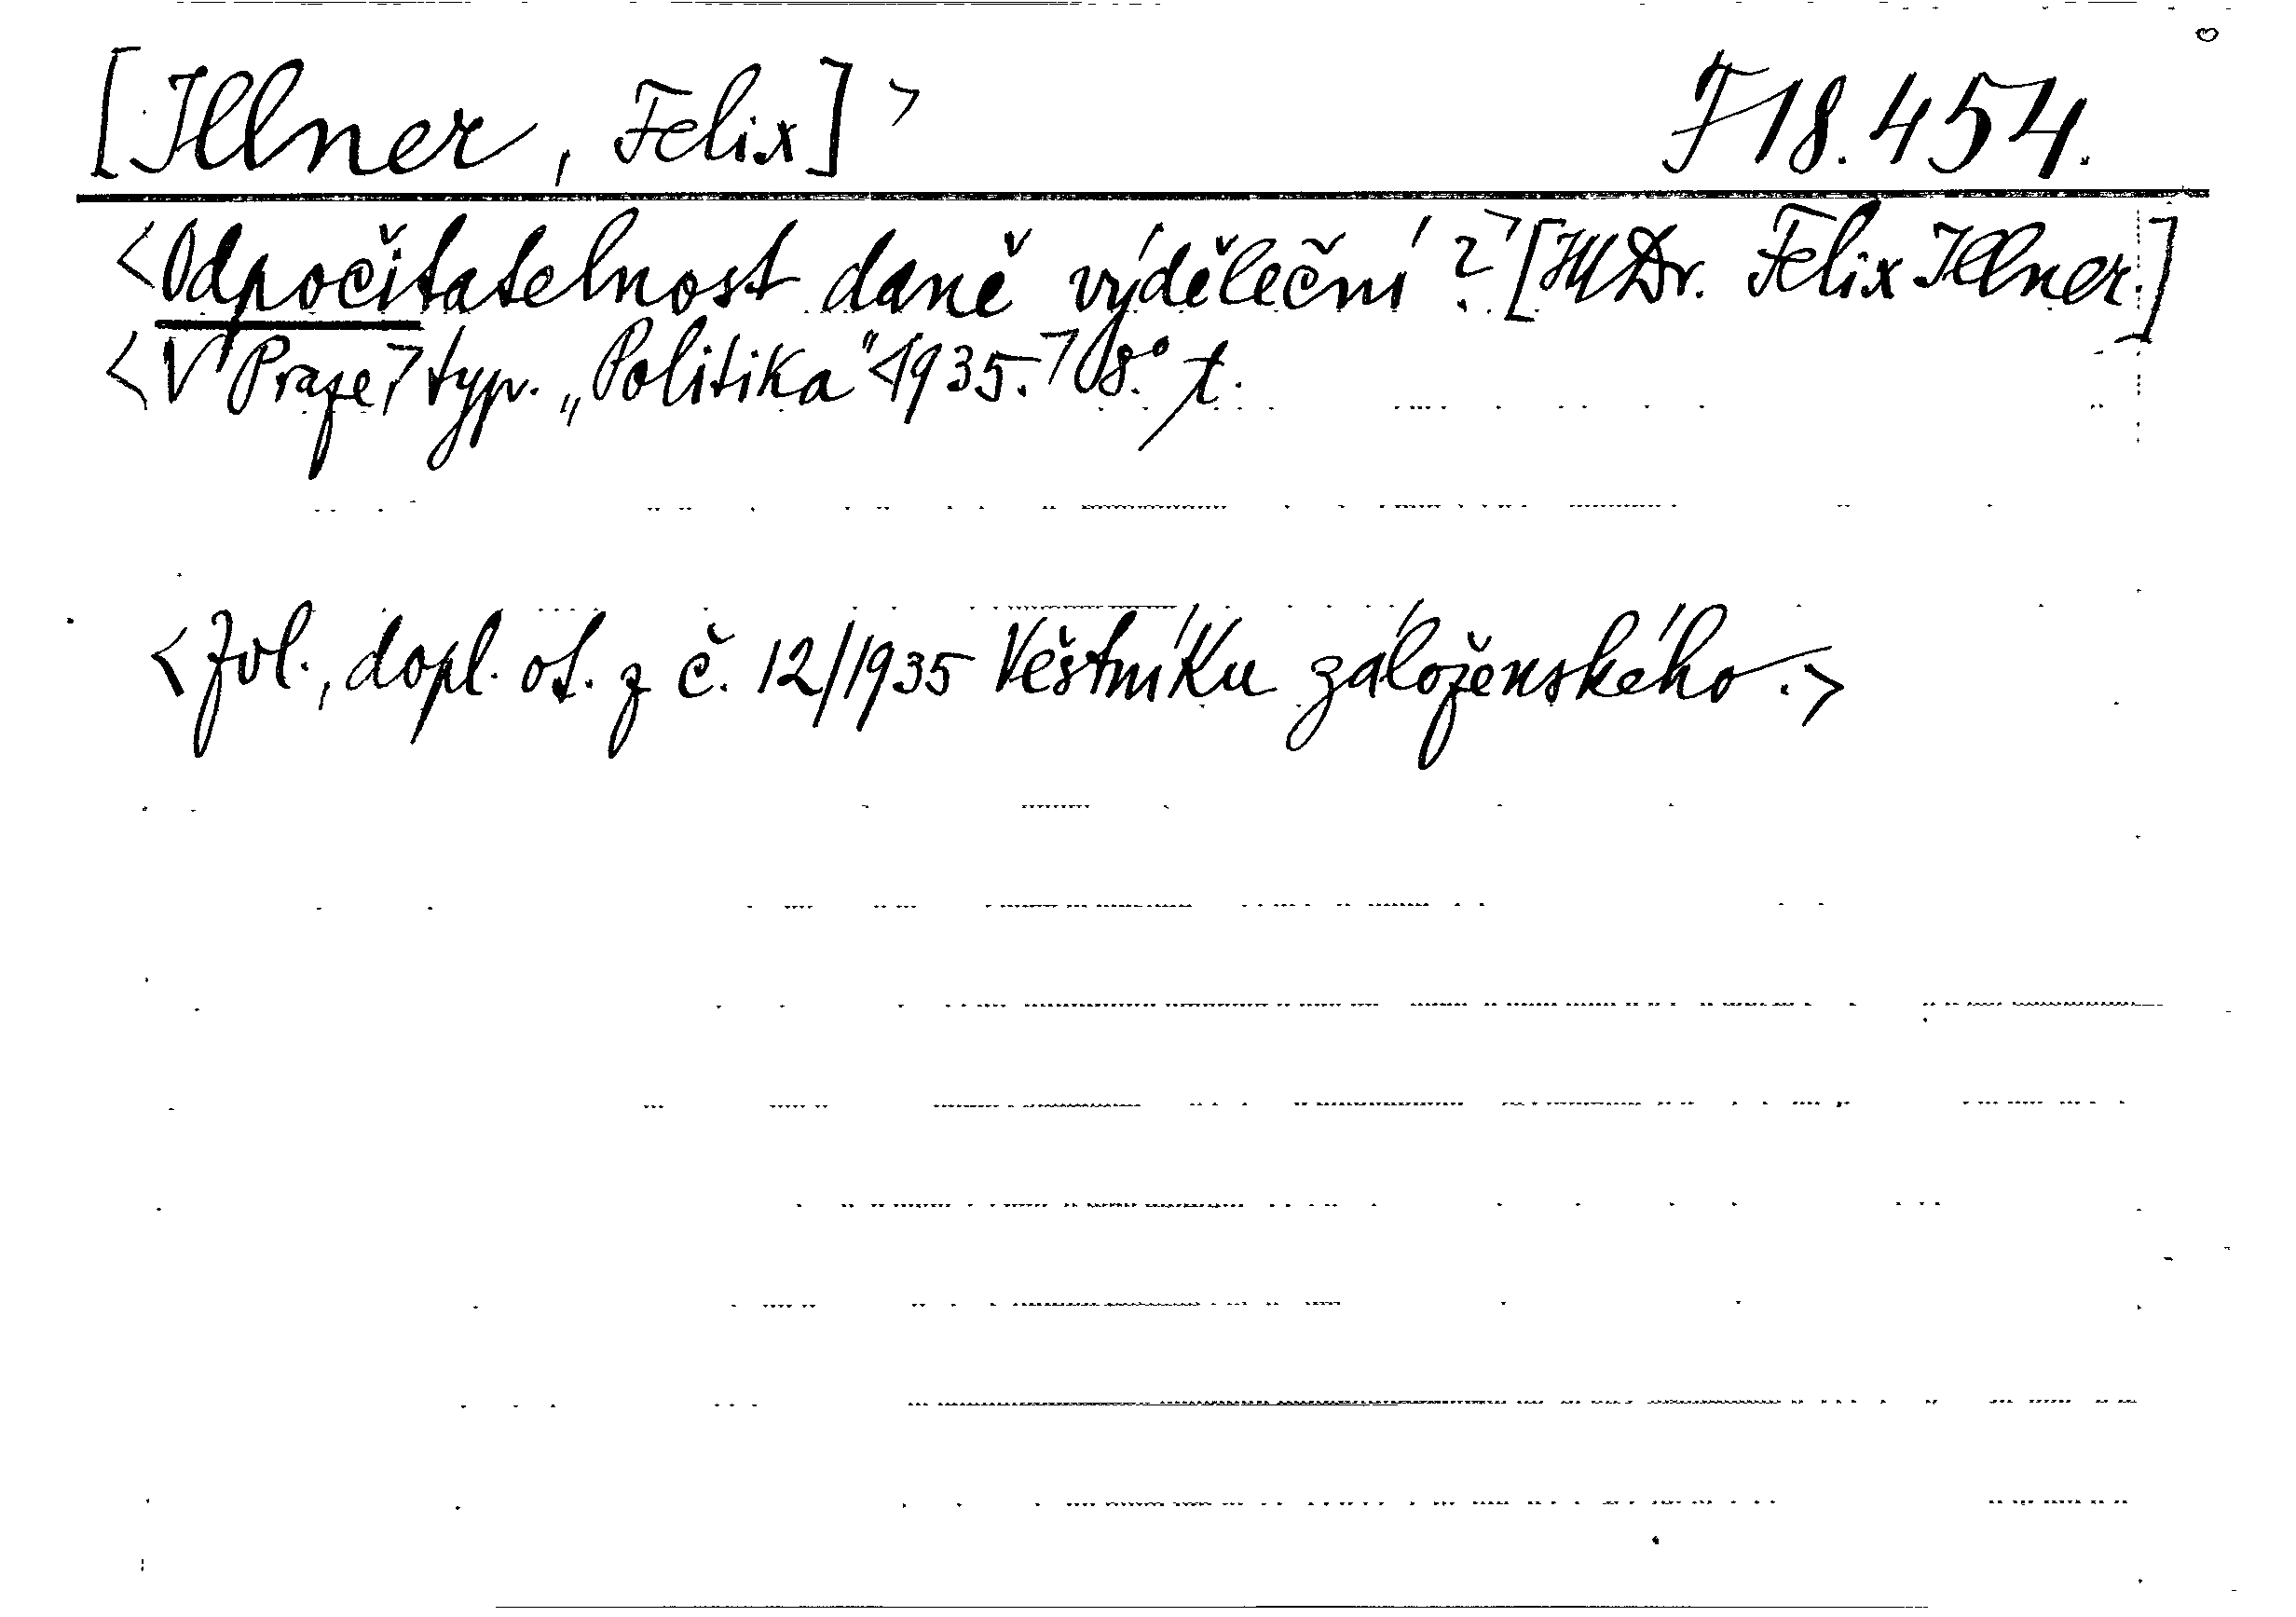 [Illner, Felix] > F 18.454.
<Odpočitatelnost daně výděleční?> [JUDr. Felix Illner.]
<V Praze,> typ. „Politika" <1935.> 8.° t.
<Zvl., dopl. ot. z č. 12/1935 Věstníku záloženského.>